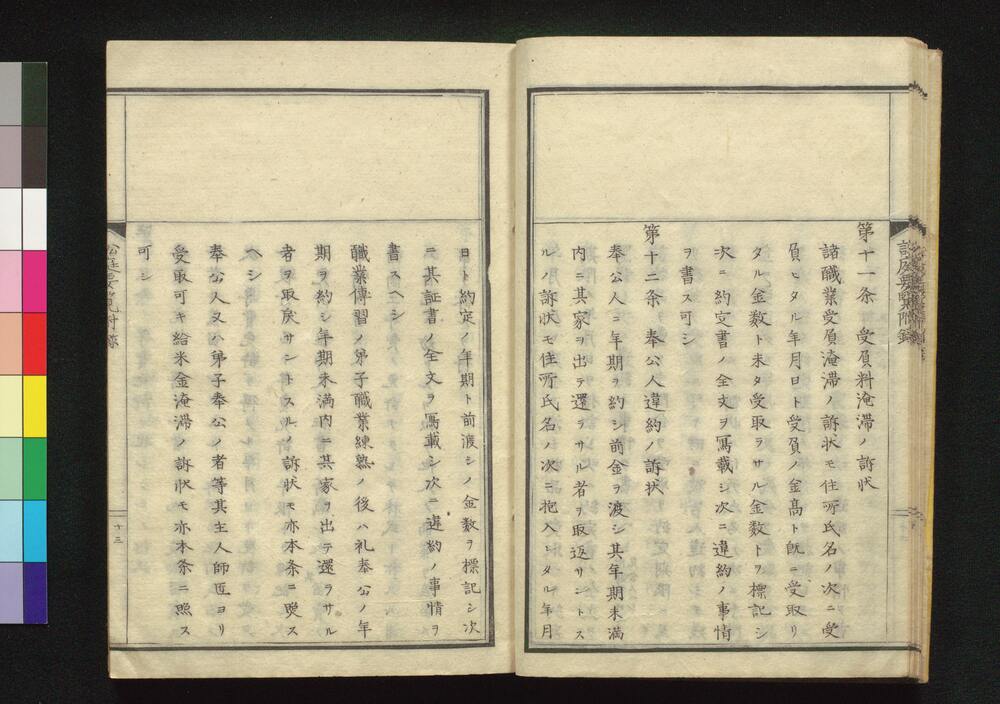 第十一条 受負料淹滞ノ訴状
諸職業受負淹滞ノ訴状モ住所氏名ノ次ニ受
負ヒタル年月日ト受負ノ金高ト既ニ受取リ
タル金数ト未タ受取ラサル金数トヲ標記シ
次ニ約定書ノ全文ヲ冩載シ次ニ違約ノ事情
ヲ書ス可シ
第十二条 奉公人違約ノ訴状
奉公人ニ年期ヲ約シ前金ヲ渡シ其年期未満
内ニ其家ヲ出テ還ラサル者ヲ取返サントス
ルノ訴状モ住所氏名ノ次ニ抱入レタル年月
日ト約定ノ年期ト前渡シノ金数ヲ標記シ次
ニ其証書ノ全文ヲ冩載シ次ニ違約ノ事情ヲ
書スヘシ
職業傳習ノ弟子職業練熟ノ後ハ礼奉公ノ年
期ヲ約シ年期未満内ニ其家ヲ出テ還ラサル
者ヲ取戻サントスルノ訴状モ亦本条ニ照ス
ヘシ
奉公人又ハ弟子奉公ノ者等其主人師匠ヨリ
受取可キ給米金淹滞ノ訴状モ亦本条ニ照ス
可シ
十三